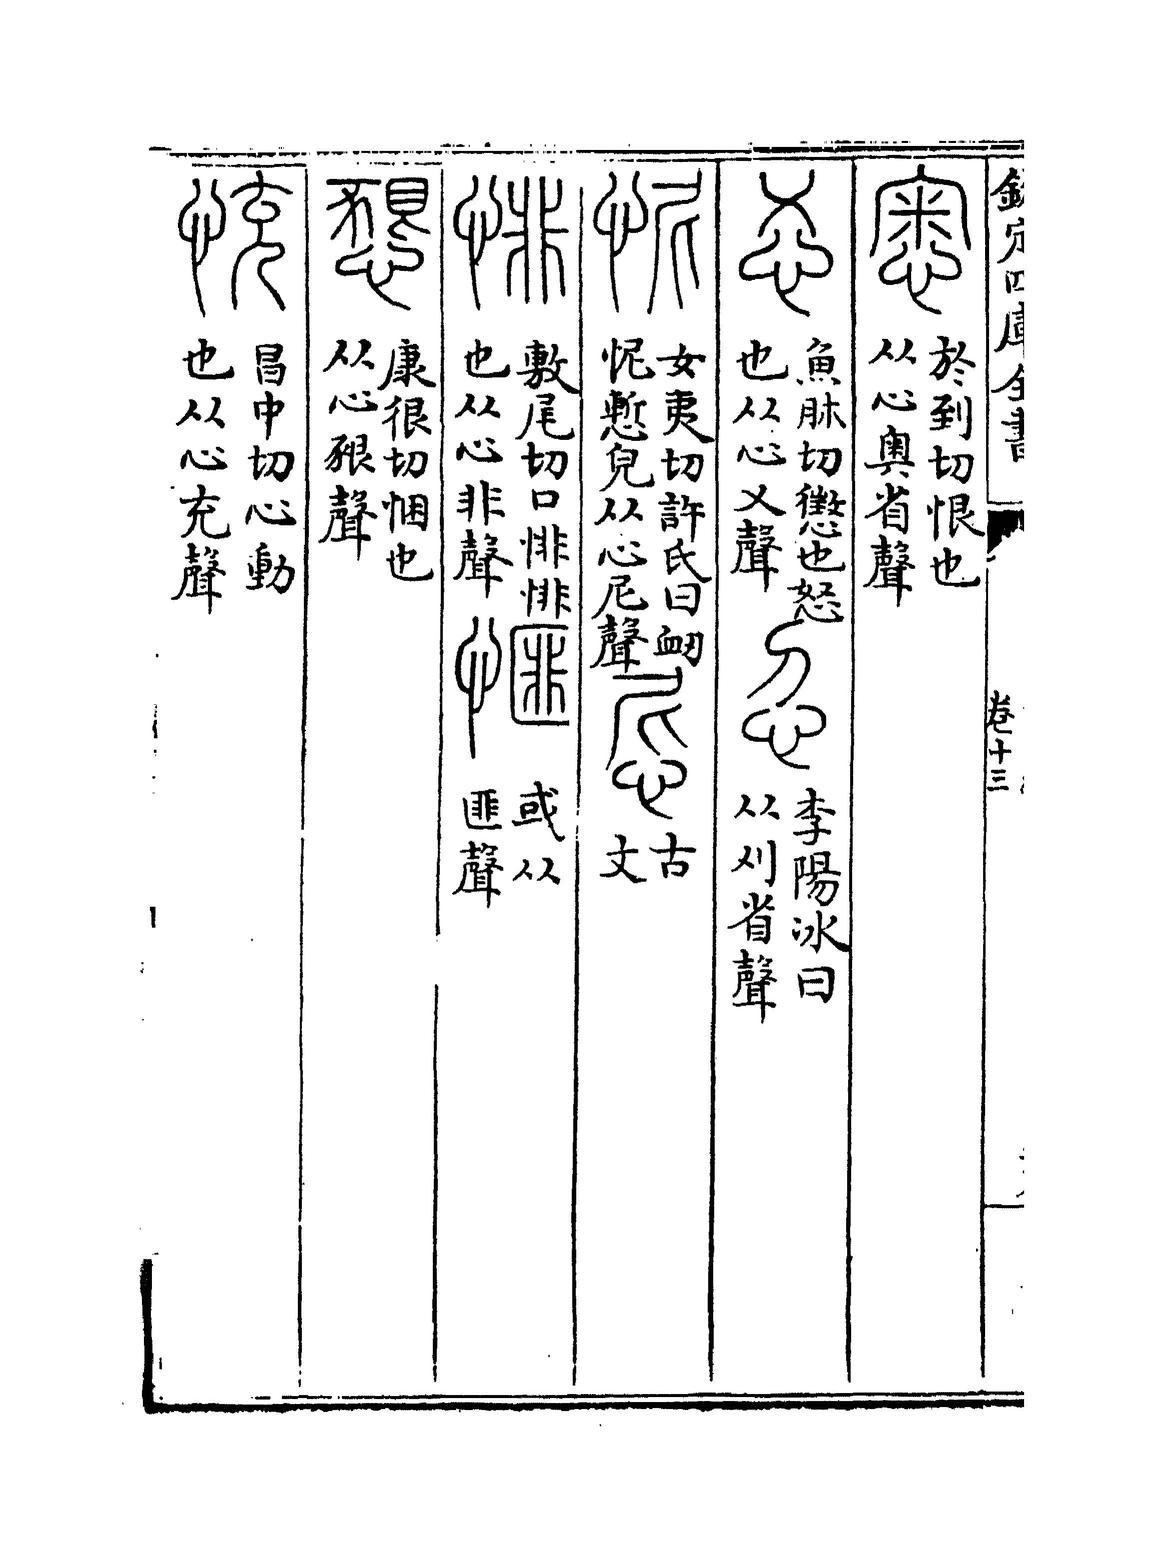 欽定四庫全書
卷十三
於到切恨也
从心奥省聲
㣻
魚肺切懲也怒
也从心乂聲
李陽冰曰
从刈省聲
怩
女夷切許氏曰䘐
怩慙皃从心尼聲
古
文
悱
敷尾切口悱悱
也从心非聲
或从
匪聲
懇
康很切悃也
从心豤聲
㤝
昌中切心動
也从心充聲